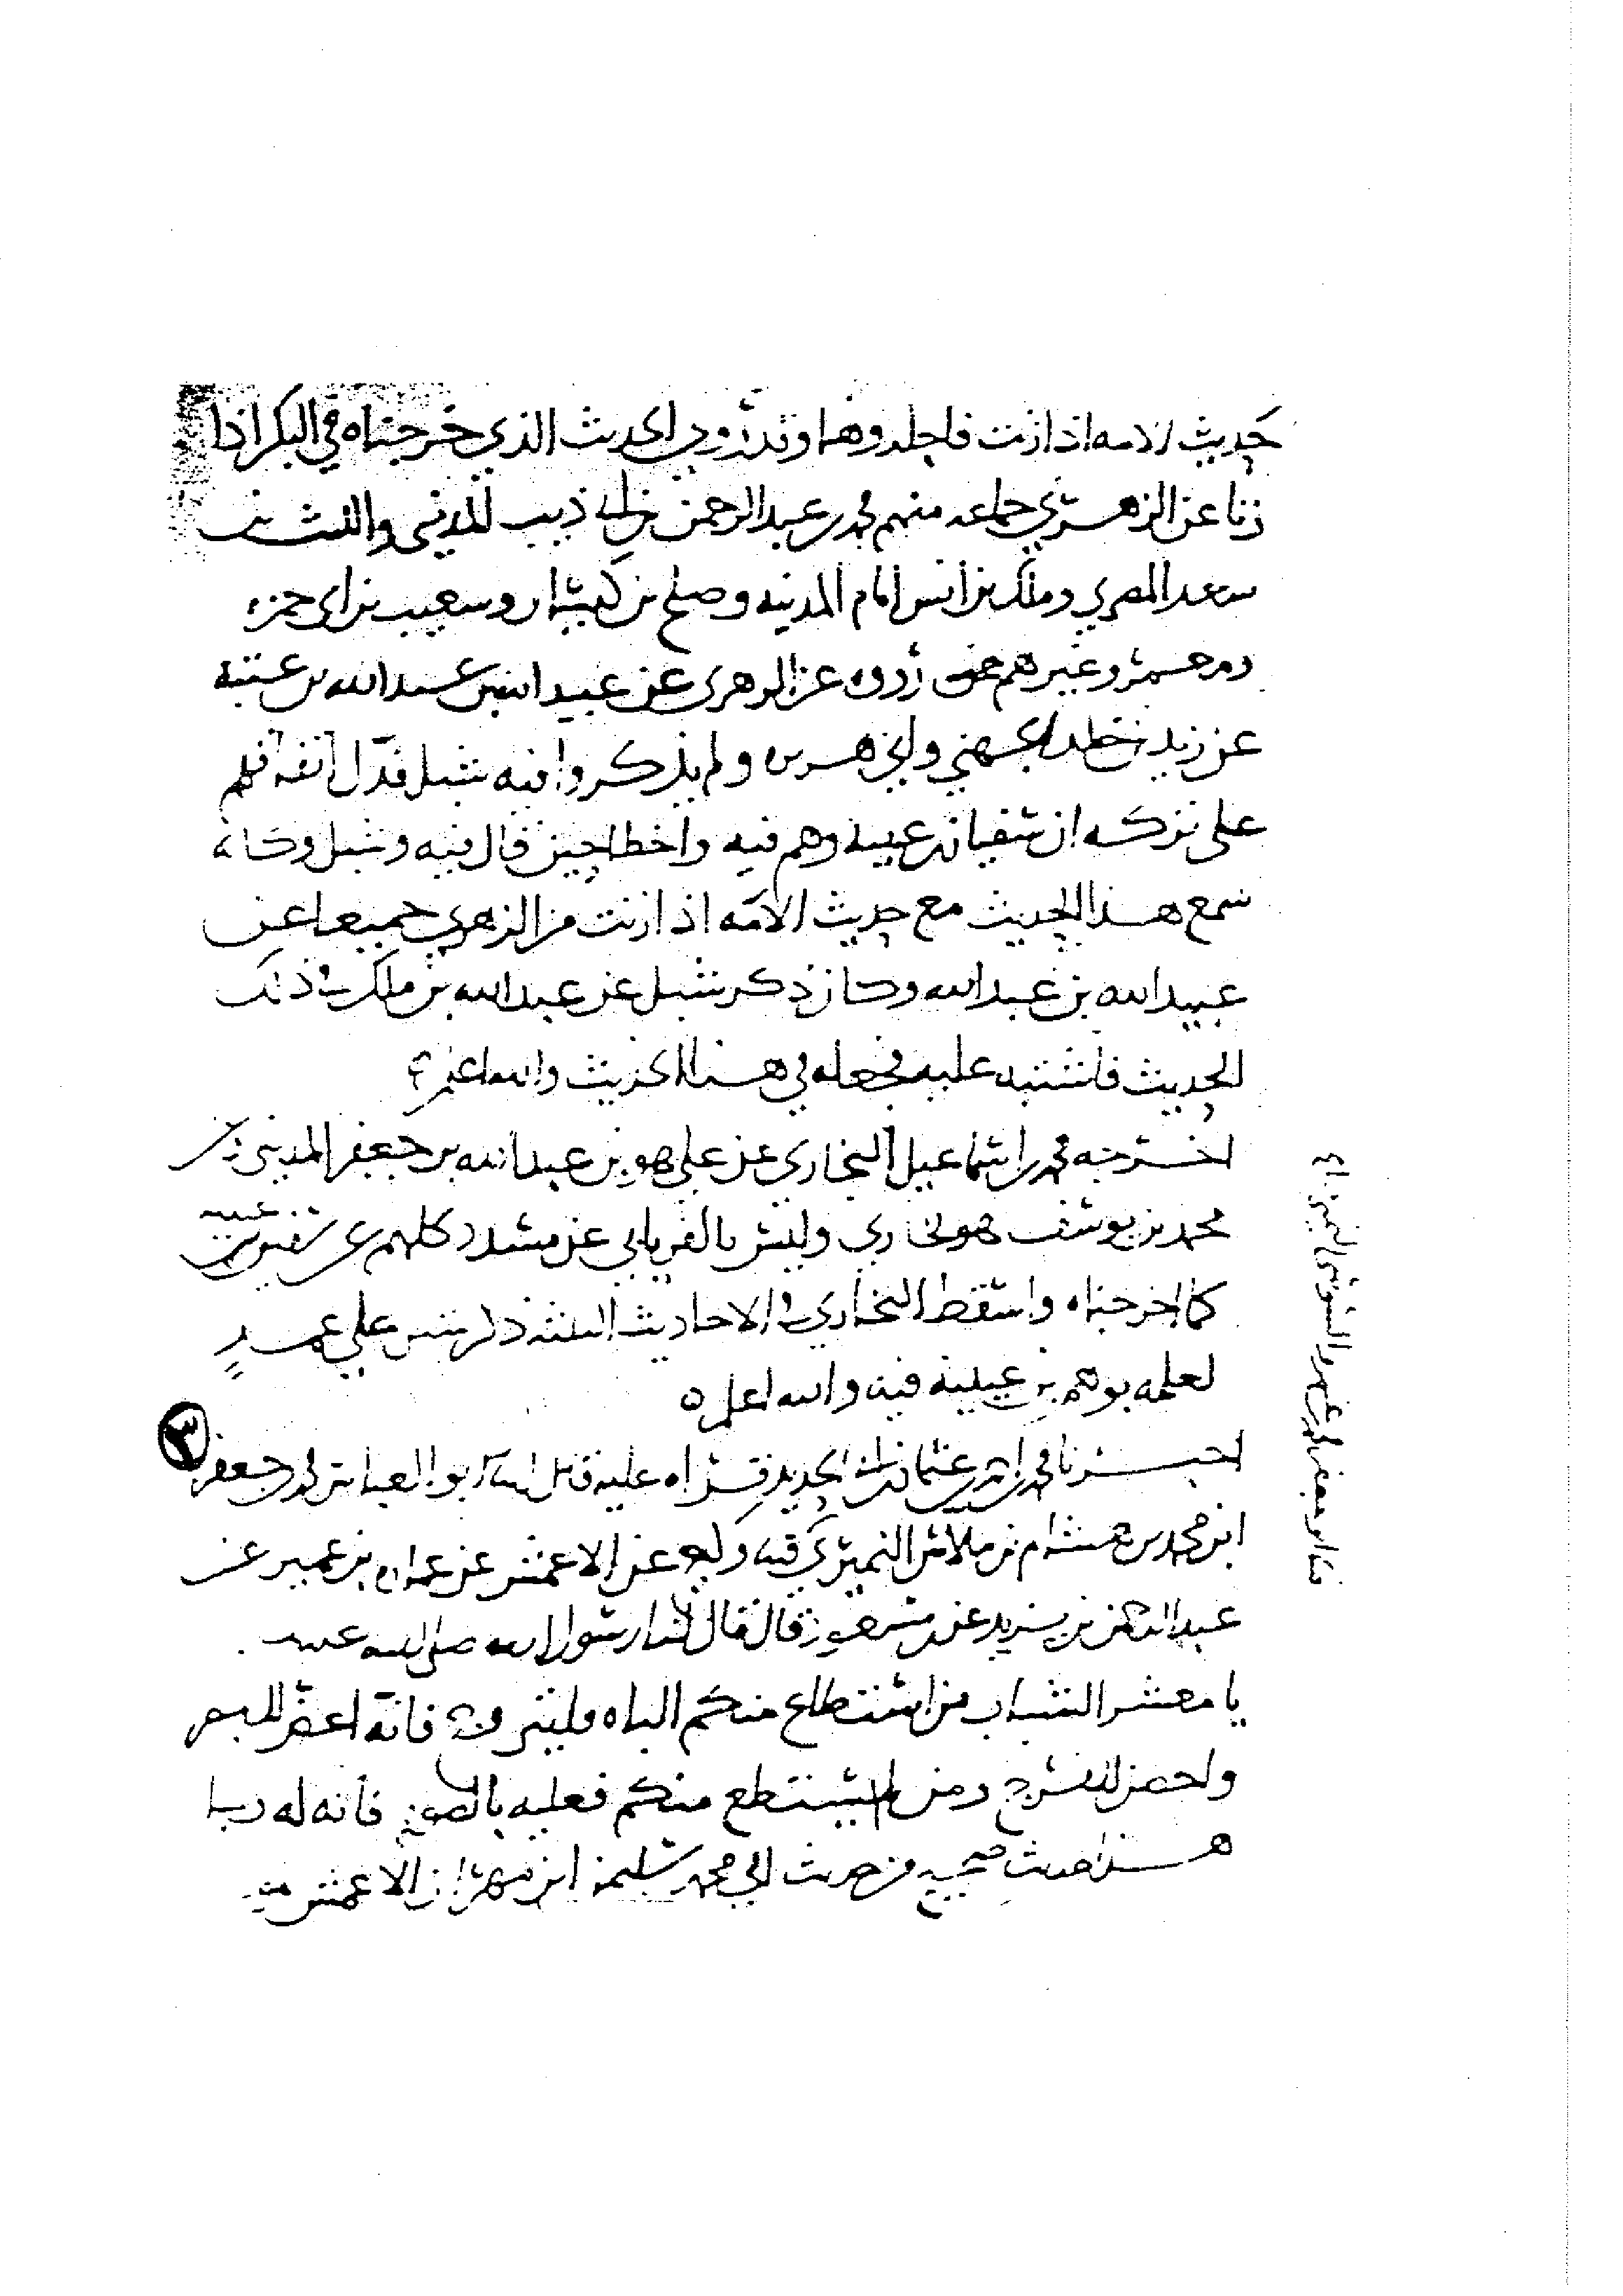 حديث الامه اذا زنت فاجلدوها وقد روى الحديث الذي خرجناه في البكر اذا
زنا عن الزهري جماعه منهم محمد بن عبد الرحمن بن ابي ذيب المديني والليث بن
سعد المصري ومالك بن انس امام المدينه وصلح بن كيسان وشعيب بن ابي حمزه
ومعمر وغيرهم رووه عن الزهري عن عبيد الله بن عبد الله بن عتبة
عن زيد بن خلد الجهني وابي هريره ولم يذكروا فيه شبل فدل اتفاقهم
على تركه ان سفيان بن عيينة وهم فيه واخطا حين قال فيه وشبل وكانه
سمع هذا الحديث مع حديث الامه اذا زنت من الزهري جميعا عن
عبيد الله بن عبد الله وكان ذكر شبل عن عبد الله بن ملك في ذلك
الحديث فاشتبه عليه فجعله في هذا الحديث والله اعلم
اخرجه محمد بن اسماعيل البخاري عن علي هو بن عبد الله بن جعفر المديني وعن
محمد بن يوسف هو بخاري وليس بالفريابي عن مسدد كلهم عن سفين بن عيينه
كما اخرجناه واسقط البخاري في الاحاديث الثلثه ذكر شبل على عمد
لعلمه بوهم بن عيينة فيه والله اعلم ه
اخبرنا محمد بن احمد بن عثمان بن ابي الحديد قراه عليه قال ابنا ابو العباس محمد بن جعفر
ابن محمد بن هشام بن ملاس النميري وكيع عن الاعمش عن عماره بن عمير عن
عبد الرحمن بن يزيد عن بن مسعود قال قال لنا رسول الله صلى الله عليه
يا معشر الشباب من استطاع منكم الباه فليتزوج فانه اغض للبصر
واحصن للفرج ومن لم يستطع منكم فعليه بالصوم فانه له وجا
هذا حديث صحيح من حديث ابي محمد سليمن ابن مهران الاعمش
٣